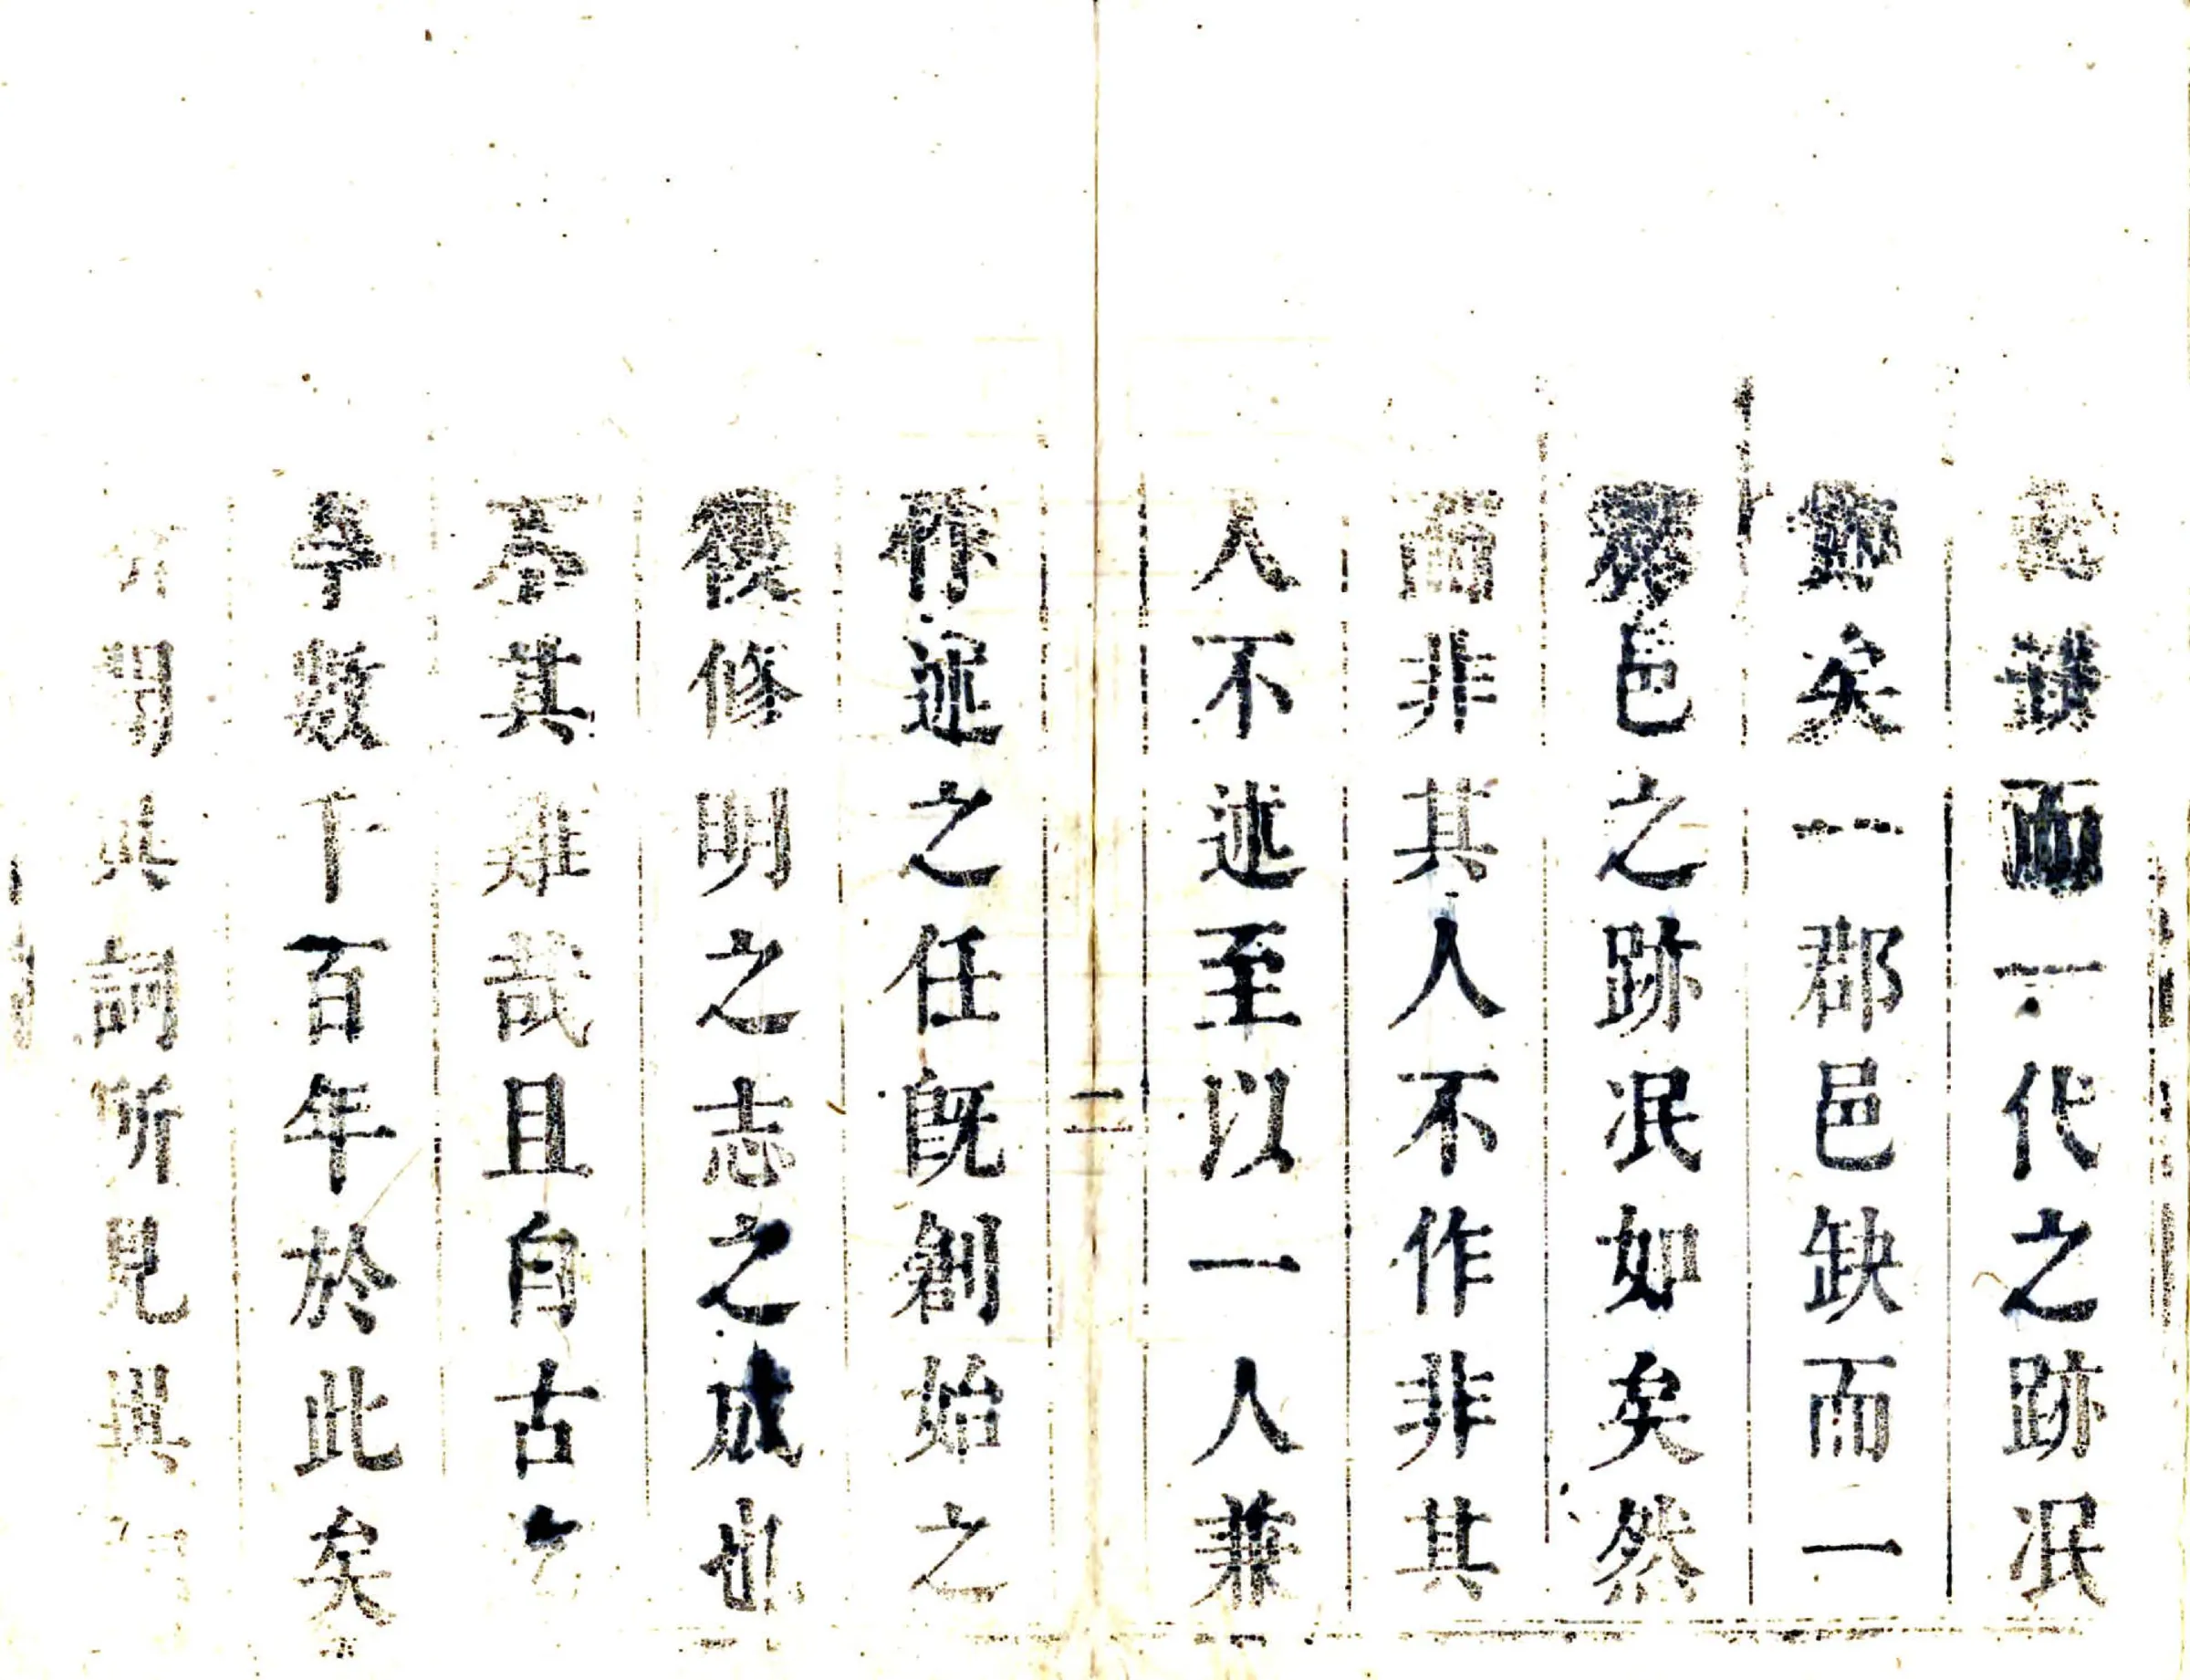 而一代之跡泯
矣一郡邑缺而一
邑之跡泯如矣然
而非其人不作非其
人不述至以一人兼
作述之任既創始之
復修明之志之成也
不其難哉且自古
今數千百年於此矣
間其詞所見異
二